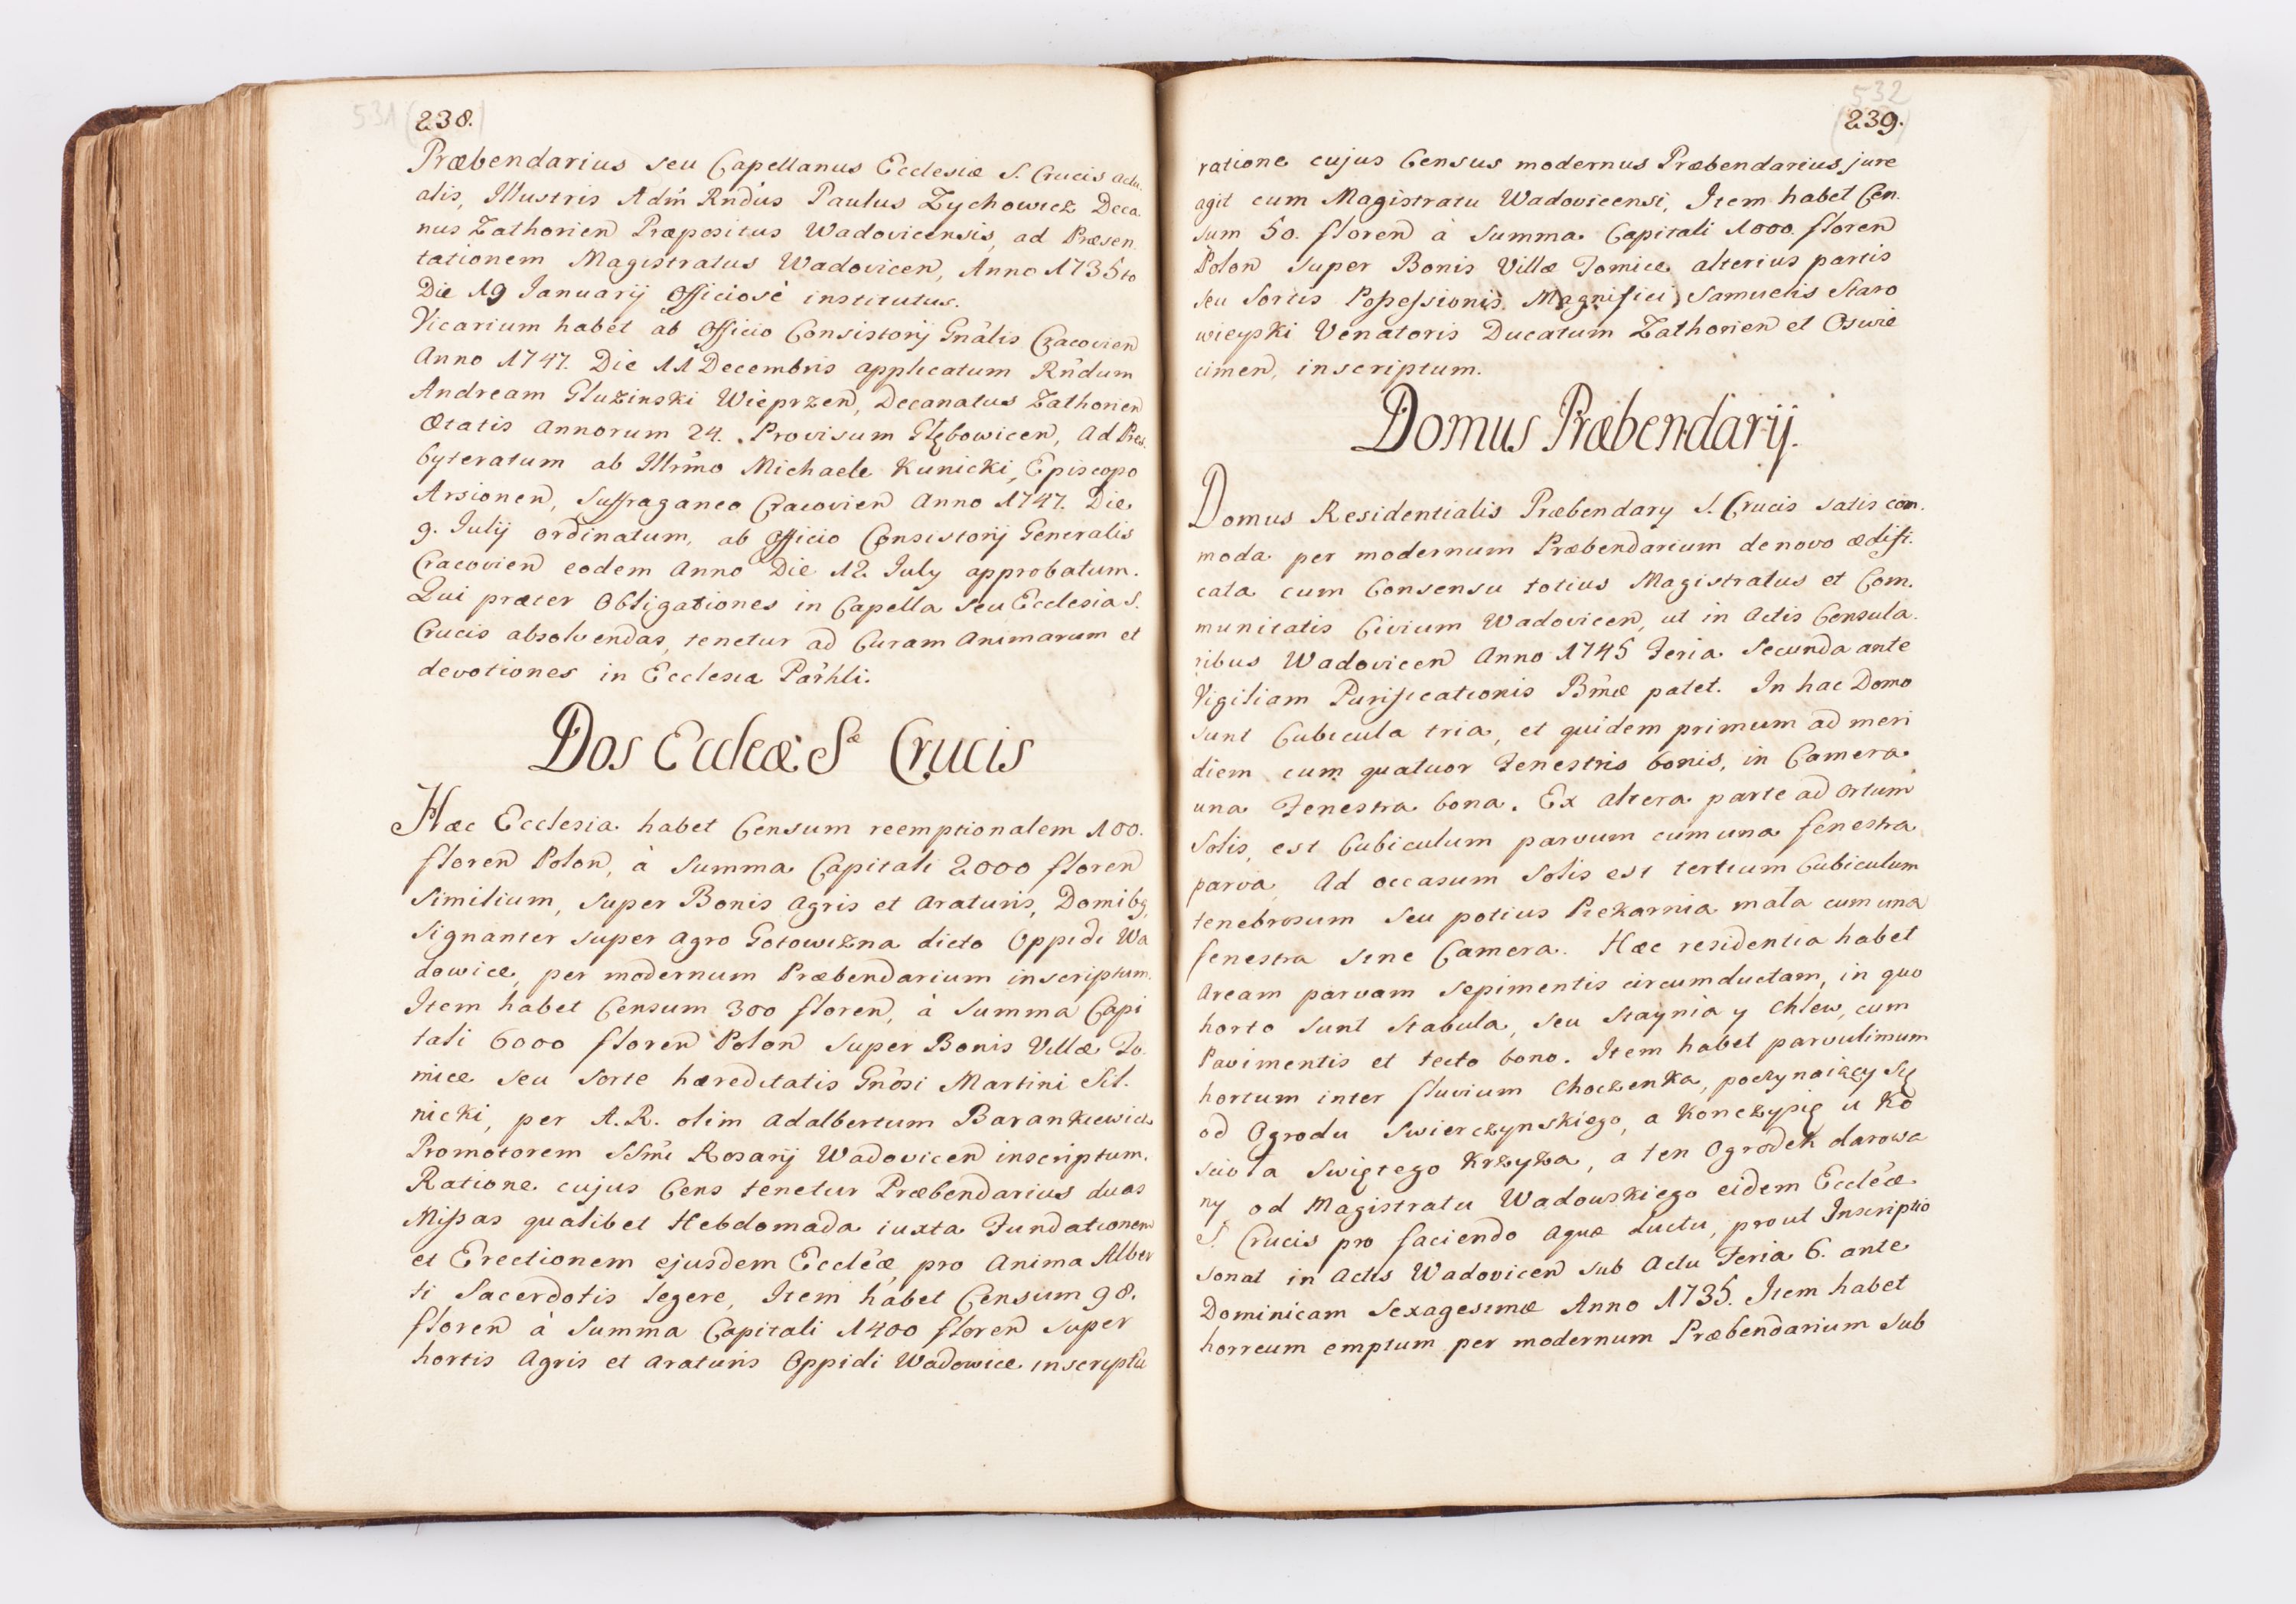 531 (238.)
Præbendarius seu Capellanus Ecclesiæ S. Crucis actu.
alis, Illustris Adm̃ Rndus Paulus Zychowicz Deca.
nus Zathorien Præpositus Wadovicensis, ad Præsen.
tationem Magistratus Wadovicen, Anno 1735to
Die 19 Ianuarij Officiosè institutus.
Vicarium habet ab Officio Consistorij Gnàlis Cracovien
Anno 1747. Die 11 Decembris applicatum Rñdum
Andream Gluzinski Wieprzen, Decanatus Zathorien
Ætatis Annorum 24. Provisum Głębowicen, Ad Pres.
byteratum ab Illrm̃o Michaele Kunicki, Episcopo
Arsionen, Suffraganeo Cracovien Anno 1747. Die
9. Iulij ordinatum, ab Officio Consistorij Generalis
Cracovien eodem Anno Die 12. July approbatum.
Qui præter Obligationes in Capella seu Ecclesia S.
Crucis absolvendas, tenetur ad Curam Animarum et
devotiones in Ecclesia Parhli.
Dos Eccleæ Sæ Crucis
Hæc Ecclesia habet Censum reemptionalem 100.
floren Polon, à Summa Capitali 2000 floren
Similium, super Bonis Agris et Araturis, Domibq,
Signanter super Agro Gotowizna dicto Oppidi Wa
dowice, per modernum Præbendarium inscriptum.
Item habet Censum 300 floren, à Summa Capi
tali 6000 floren Polon super Bonis Villæ To.
mice seu Sorte hæreditatis Gnosi Martini Sil.
nicki, per A.R. olim Adalbertum Barankiewicz
Promotorem SSm̃i Rosarij Wadovicen inscriptum.
Ratione cujus Cens tenetur Præbendarius duas
Missas qualibet Hebdomada iuxta Fundationem
et Erectionem ejusdem Eccléæ pro Anima Alber
ti Sacerdotis legere, Item habet Censum 98.
floren à Summa Capitali 1400 floren super
hortis Agris et Araturis Oppidi Wadowice inscriptũ
532
(239.)
ratione cujus Census modernus Præbendarius jure
agit cum Magistratu Wadovicensi, Item habet Cen.
sum 50. floren à Summa Capitali 1000. floren
Polon super Bonis Villæ Tomice alterius partis
seu Sortis Possessionis Magnifici Samuelis Staro
wieyski Venatoris Ducatum Zathorien et Oswie
cimen, inscriptum.
Domus Præbendarij.
Domus Residentialis Præbendary S. Crucis satis com.
moda per modernum Præbendarium denovo ædifi.
cata cum Consensu totius Magistratus et Com.
munitatis Civium Wadovicen, ut in Actis Consula.
ribus Wadovicen Anno 1745 Feria Secunda ante
Vigiliam Purificationis Bm̃æ patet. In hac Domo
sunt Cubicula tria, et quidem primum ad meri
diem cum quatuor Fenestris bonis, in Camera
una Fenestra bona. Ex altera parte ad ortum
Solis, est Cubiculum parvum cum una fenestra
parva. Ad occasum Solis est tertium Cubiculum
tenebrosum seu potius Piekarnia mała cum una
fenestra sine Camera. Hæc residentia habet
Aream parvam sepimentis circumductam, in quo
horto sunt Stabula, seu Staynia y Chlew, cum
Pavimentis et tecto bono. Item habet parvulimum
hortum inter fluvium Choczenka, poczynaiący się
od Ogrodu Swierczynskiego, a Konczypię u Ko
scioła Swiętego Krzyża, a ten Ogrodek darowa
ny od Magistratu Wadowskiego eidem Eccléæ
S. Crucis pro faciendo Aquæ ductu, prout Inscriptio
sonat in Actis Wadovicen sub Actu Feria 6. ante
Dominicam Sexagesimæ Anno 1735. Item habet
horreum emptum per modernum Præbendarium sub